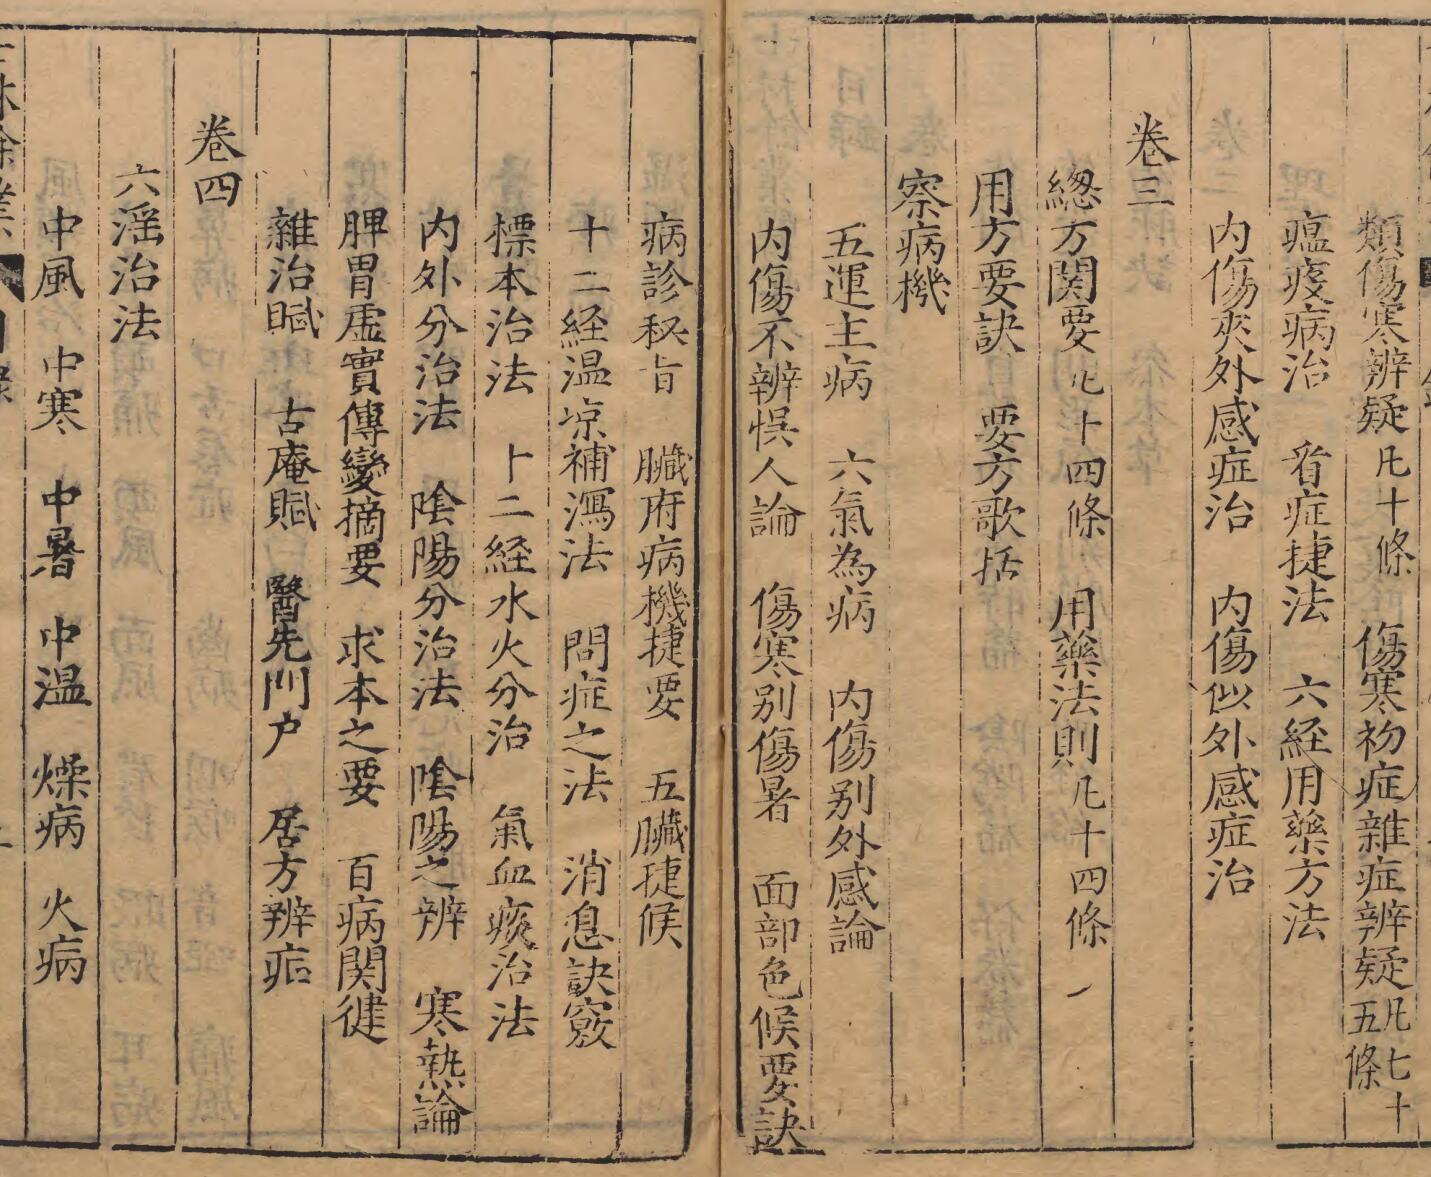 類傷寒辨疑凡十條　傷寒初症雜症辨疑凡七十五條
瘟疫病治　看症捷法　六経用藥方法
内傷夾外感症治　内傷似外感症治
卷三
緫方関要凡十四條　用藥法則凡十四條
用方要訣　要方歌括
察病機
五運主病　六氣為病　内傷别外感論
内傷不辨悞人論　傷寒别傷暑　面部色候要訣
病診秘旨　臟府病機捷要　五臟捷候
十二経温凉補瀉法　問症之法　消息訣竅
標本治法　十二経水火分治　氣血痰治法
内外分治法　陰陽分治法　陰陽之辨　寒熱論
脾胃虛實傳變摘要　求本之要　百病関揵
雜治賦　古庵賦　醫先門户　居方辨症
卷四
六淫治法
中風　中寒　中暑　中温　燥病　火病